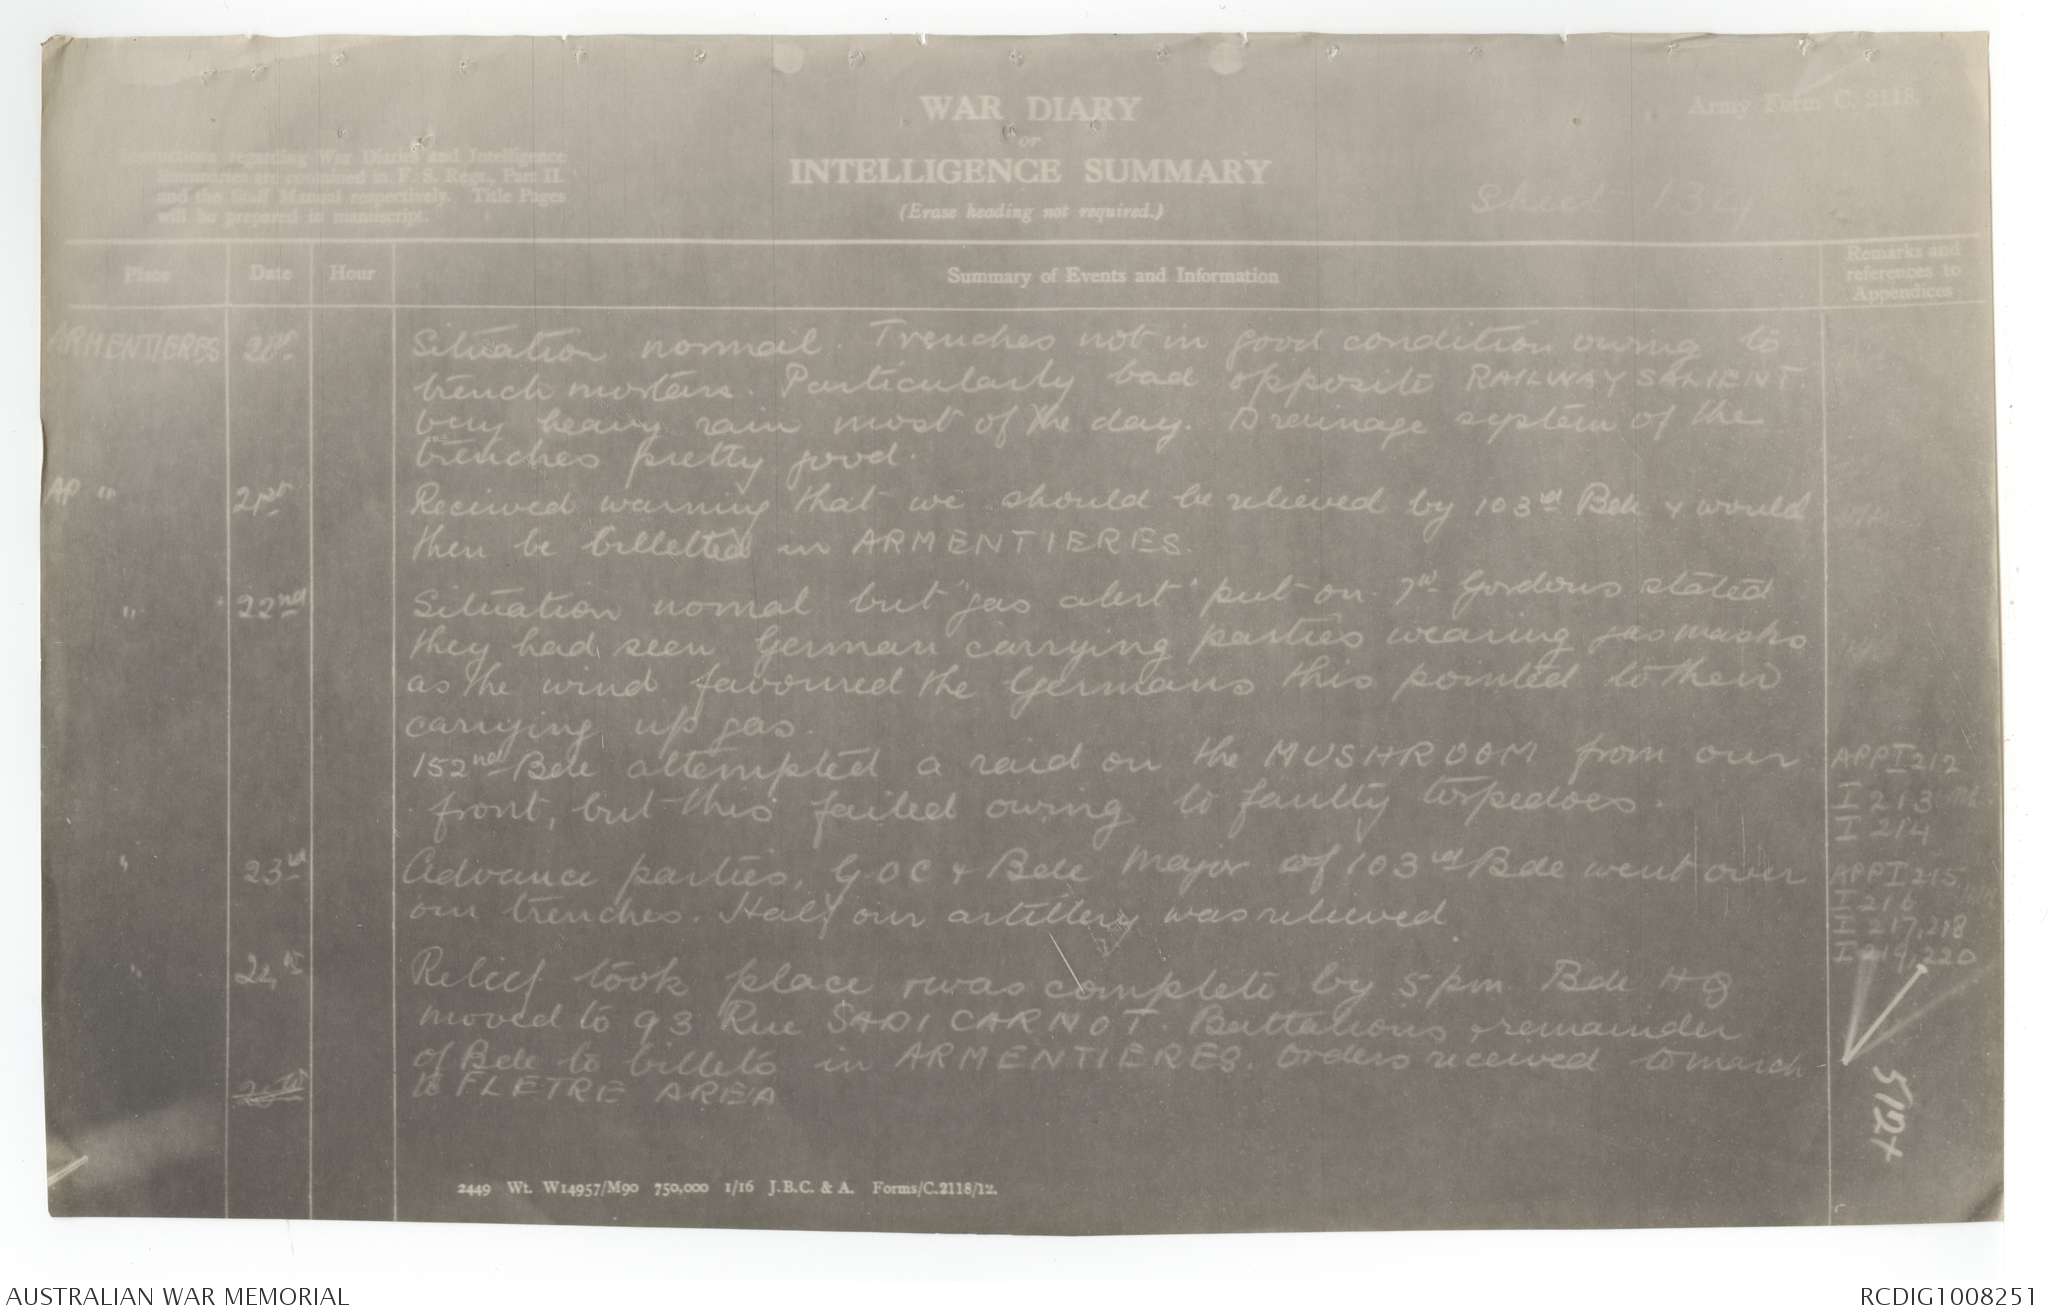 WAR DIARY
or
INTELLIGENCE SUMMARY
(Erase heading not required.)
Army Form C. 2118.
Instructions regarding War Diaries and Intelligence
Summaries are contained in F. S. Regs., Part II.
and the Staff Manual respectively. Title Pages
will be prepared in manuscript.
Sheet 134
Place Date Hour Summary of Events and Information Remarks and references to Appendices
ARMENTIERES Situation normal. Trenches not in good condition owing to
trench mortars. Particularly bad opposite RAILWAY SALIENT.
very heavy rain most of the day. Drainage system of the
trenches pretty good.
" 21st Received warning that we should be relieved by 103rd Bde & would
then be billetted in ARMENTIERES.
" 22nd Situation normal but "gas alert" put on. 7th Gordons stated
they had seen German carrying parties wearing gas masks
as the wind favoured the Germans this pointed to their
carrying up gas.
152nd Bde attempted a raid on the MUSHROOM from our APP I 212
front, but this failed owing to faulty torpedoes. I 213
I 214
" 23rd Advance parties, GOC & Bde Major of 103rd Bde went over APP I 215
our trenches. Half our artillery was relieved. I 216
I 217, 218
I 219, 220
" 24th Relief took place & was complete by 5 pm Bde HQ
moved to 93 Rue SADI CARNOT. Battalions & remainder
of Bde to billets in ARMENTIERES. Orders received to march
to FLETRE AREA
2449 Wt. W14957/M90 750,000 1/16 J.B.C. & A. Forms/C.2118/12.
AUSTRALIAN WAR MEMORIAL
RCDIG1008251